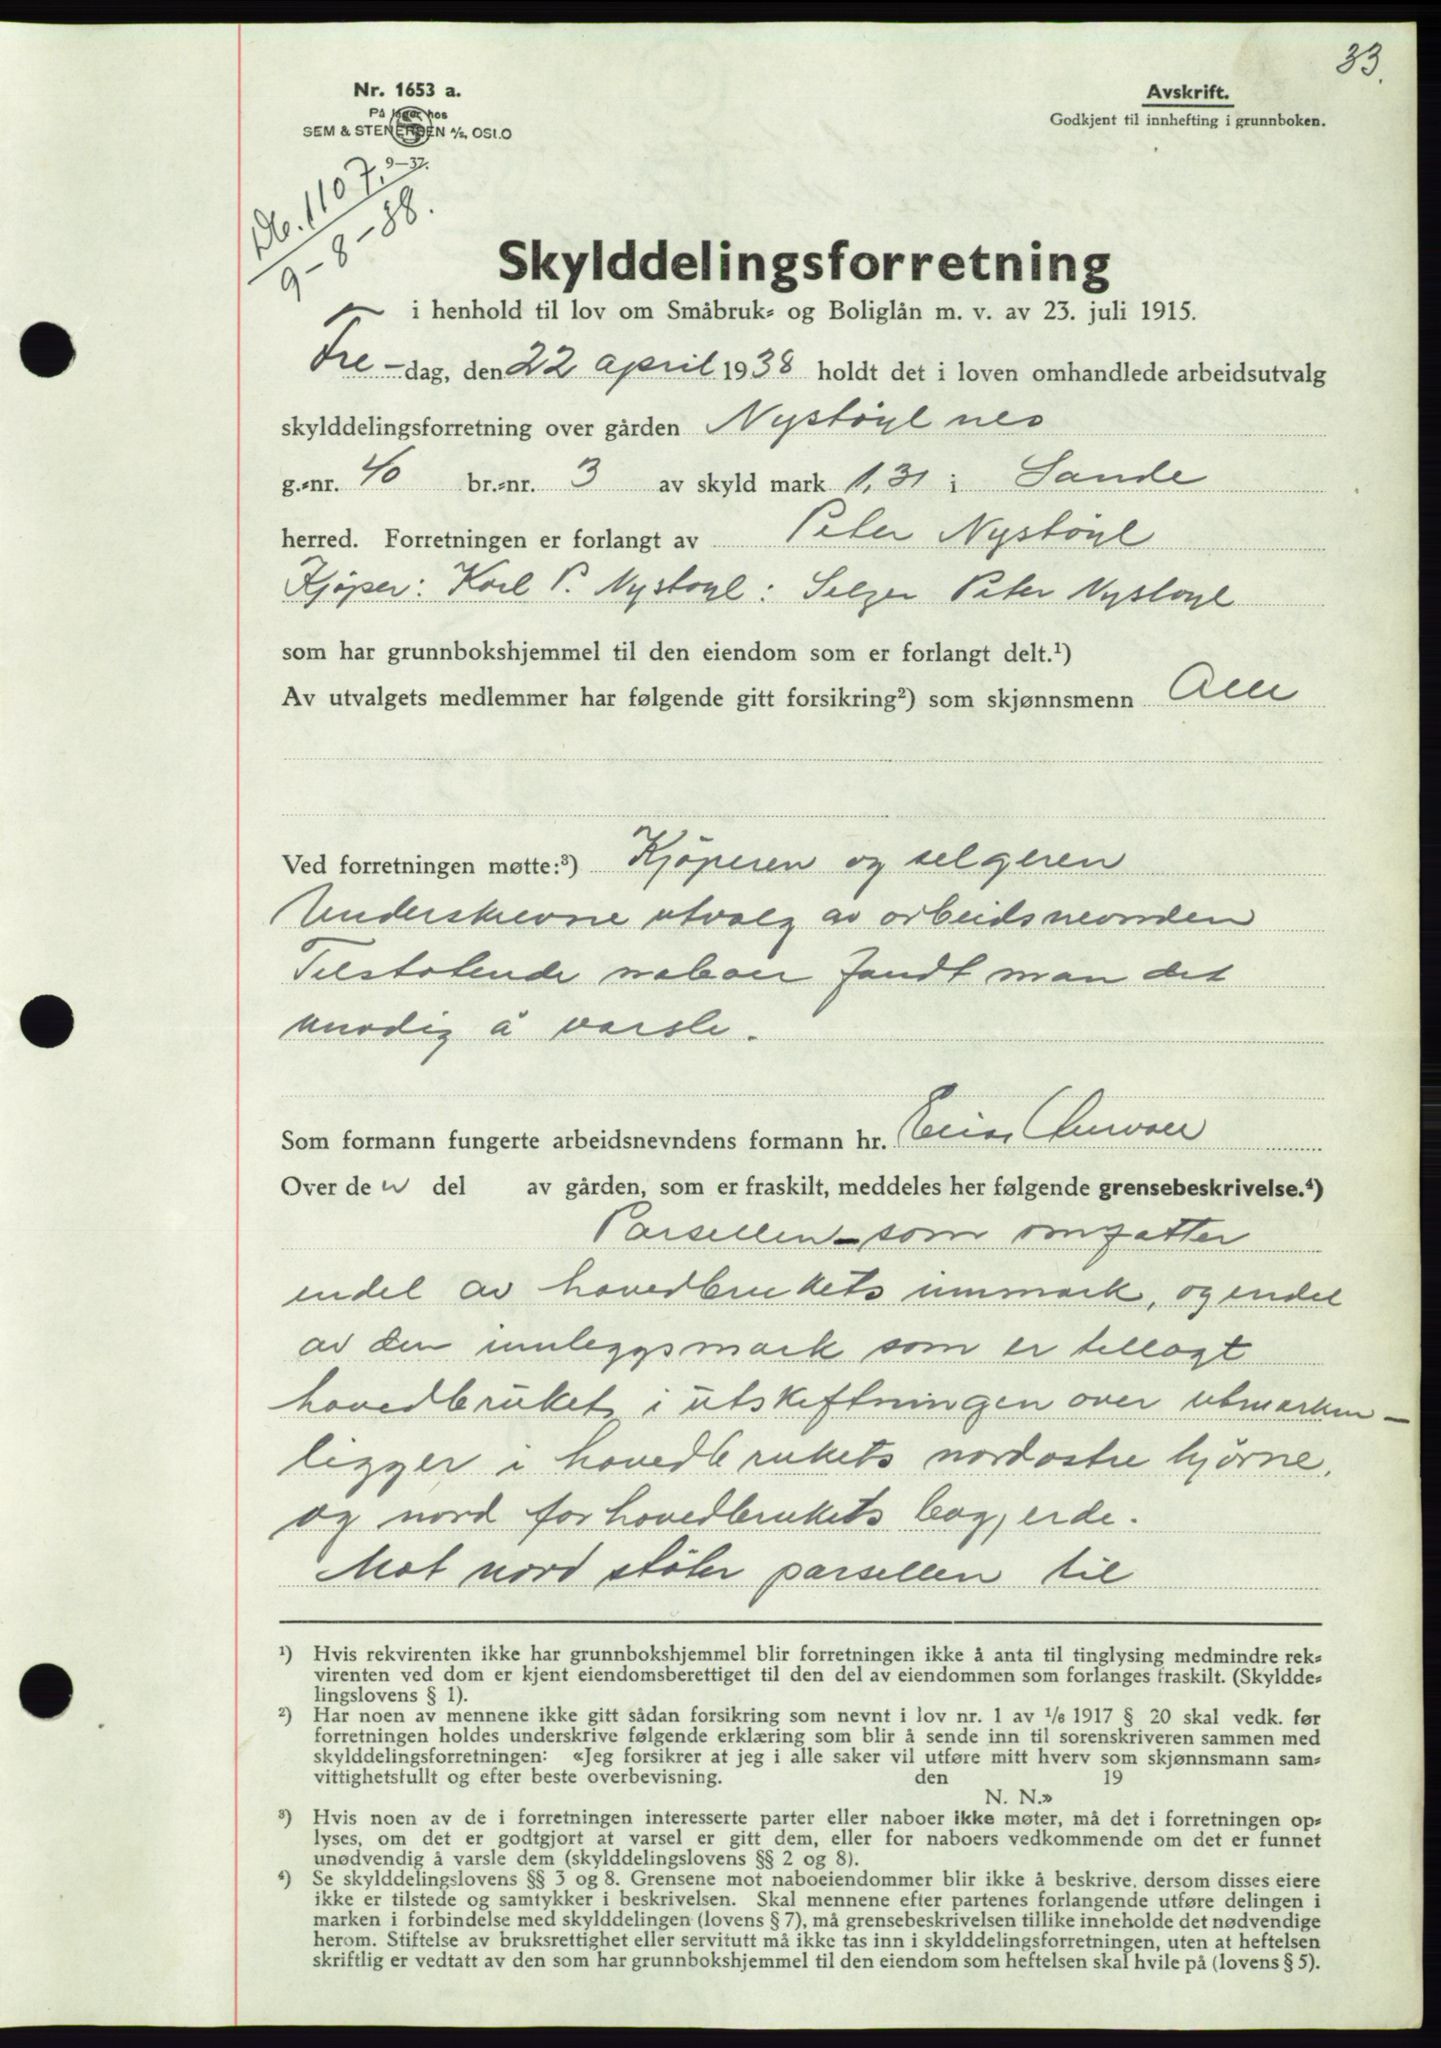 33.
Nr. 1653 a.
På lager hos
SEM & STENERSEN A/S, OSLO
9—37.
Avskrift.
Godkjent til innhefting i grunnboken.
1107.
9-8-38.
Skylddelingsforretning
i henhold til lov om Småbruk- og Boliglån m. v. av 23. juli 1915.
Fre-dag, den 22 april 1938 holdt det i loven omhandlede arbeidsutvalg
skylddelingsforretning over gården Nystöyl nes
g.-nr. 40 br.-nr. 3 av skyld mark 1,31 i Sande
herred. Forretningen er forlangt av Peter Nystöyl
Kjöper: Karl P. Nystoyl: Selger Peter Nystoyl
som har grunnbokshjemmel til den eiendom som er forlangt delt.¹)
Av utvalgets medlemmer har følgende gitt forsikring²) som skjønnsmenn Alle
Ved forretningen møtte:³) Kjöperen og selgeren
Underskrevne utvalg av arbeidsnevnden
Tilstøtende naboer fandt man det
unødig å varsle.
Som formann fungerte arbeidsnevndens formann hr. Elias
Over den del av gården, som er fraskilt, meddeles her følgende grensebeskrivelse.⁴)
Parsellen – som omfatter
endel av hovedbrukets innmark, og endel
av den innleggsmark som er tillagt
hovedbruket i utskiftningen over utmarken –
ligger i hovedbrukets nordøstre hjørne,
og nord for hovedbrukets bøgjerde.
Mot nord støter parsellen til
¹) Hvis rekvirenten ikke har grunnbokshjemmel blir forretningen ikke å anta til tinglysing medmindre rek-
virenten ved dom er kjent eiendomsberettiget til den del av eiendommen som forlanges fraskilt. (Skyldde-
lingslovens § 1).
²) Har noen av mennene ikke gitt sådan forsikring som nevnt i lov nr. 1 av 1/6 1917 § 20 skal vedk. før
forretningen holdes underskrive følgende erklæring som blir å sende inn til sorenskriveren sammen med
skylddelingsforretningen: «Jeg forsikrer at jeg i alle saker vil utføre mitt hverv som skjønnsmann sam-
vittighetsfullt og efter beste overbevisning. den 19
N. N.»
³) Hvis noen av de i forretningen interesserte parter eller naboer ikke møter, må det i forretningen op-
lyses, om det er godtgjort at varsel er gitt dem, eller for naboers vedkommende om det er funnet
unødvendig å varsle dem (skylddelingslovens §§ 2 og 8).
⁴) Se skylddelingslovens §§ 3 og 8. Grensene mot naboeiendommer blir ikke å beskrive, dersom disses eiere
ikke er tilstede og samtykker i beskrivelsen. Skal mennene efter partenes forlangende utføre delingen i
marken i forbindelse med skylddelingen (lovens § 7), må grensebeskrivelsen tillike inneholde det nødvendige
herom. Stiftelse av bruksrettighet eller servitutt må ikke tas inn i skylddelingsforretningen, uten at heftelsen
skriftlig er vedtatt av den som har grunnbokshjemmel til den eiendom som heftelsen skal hvile på (lovens § 5).